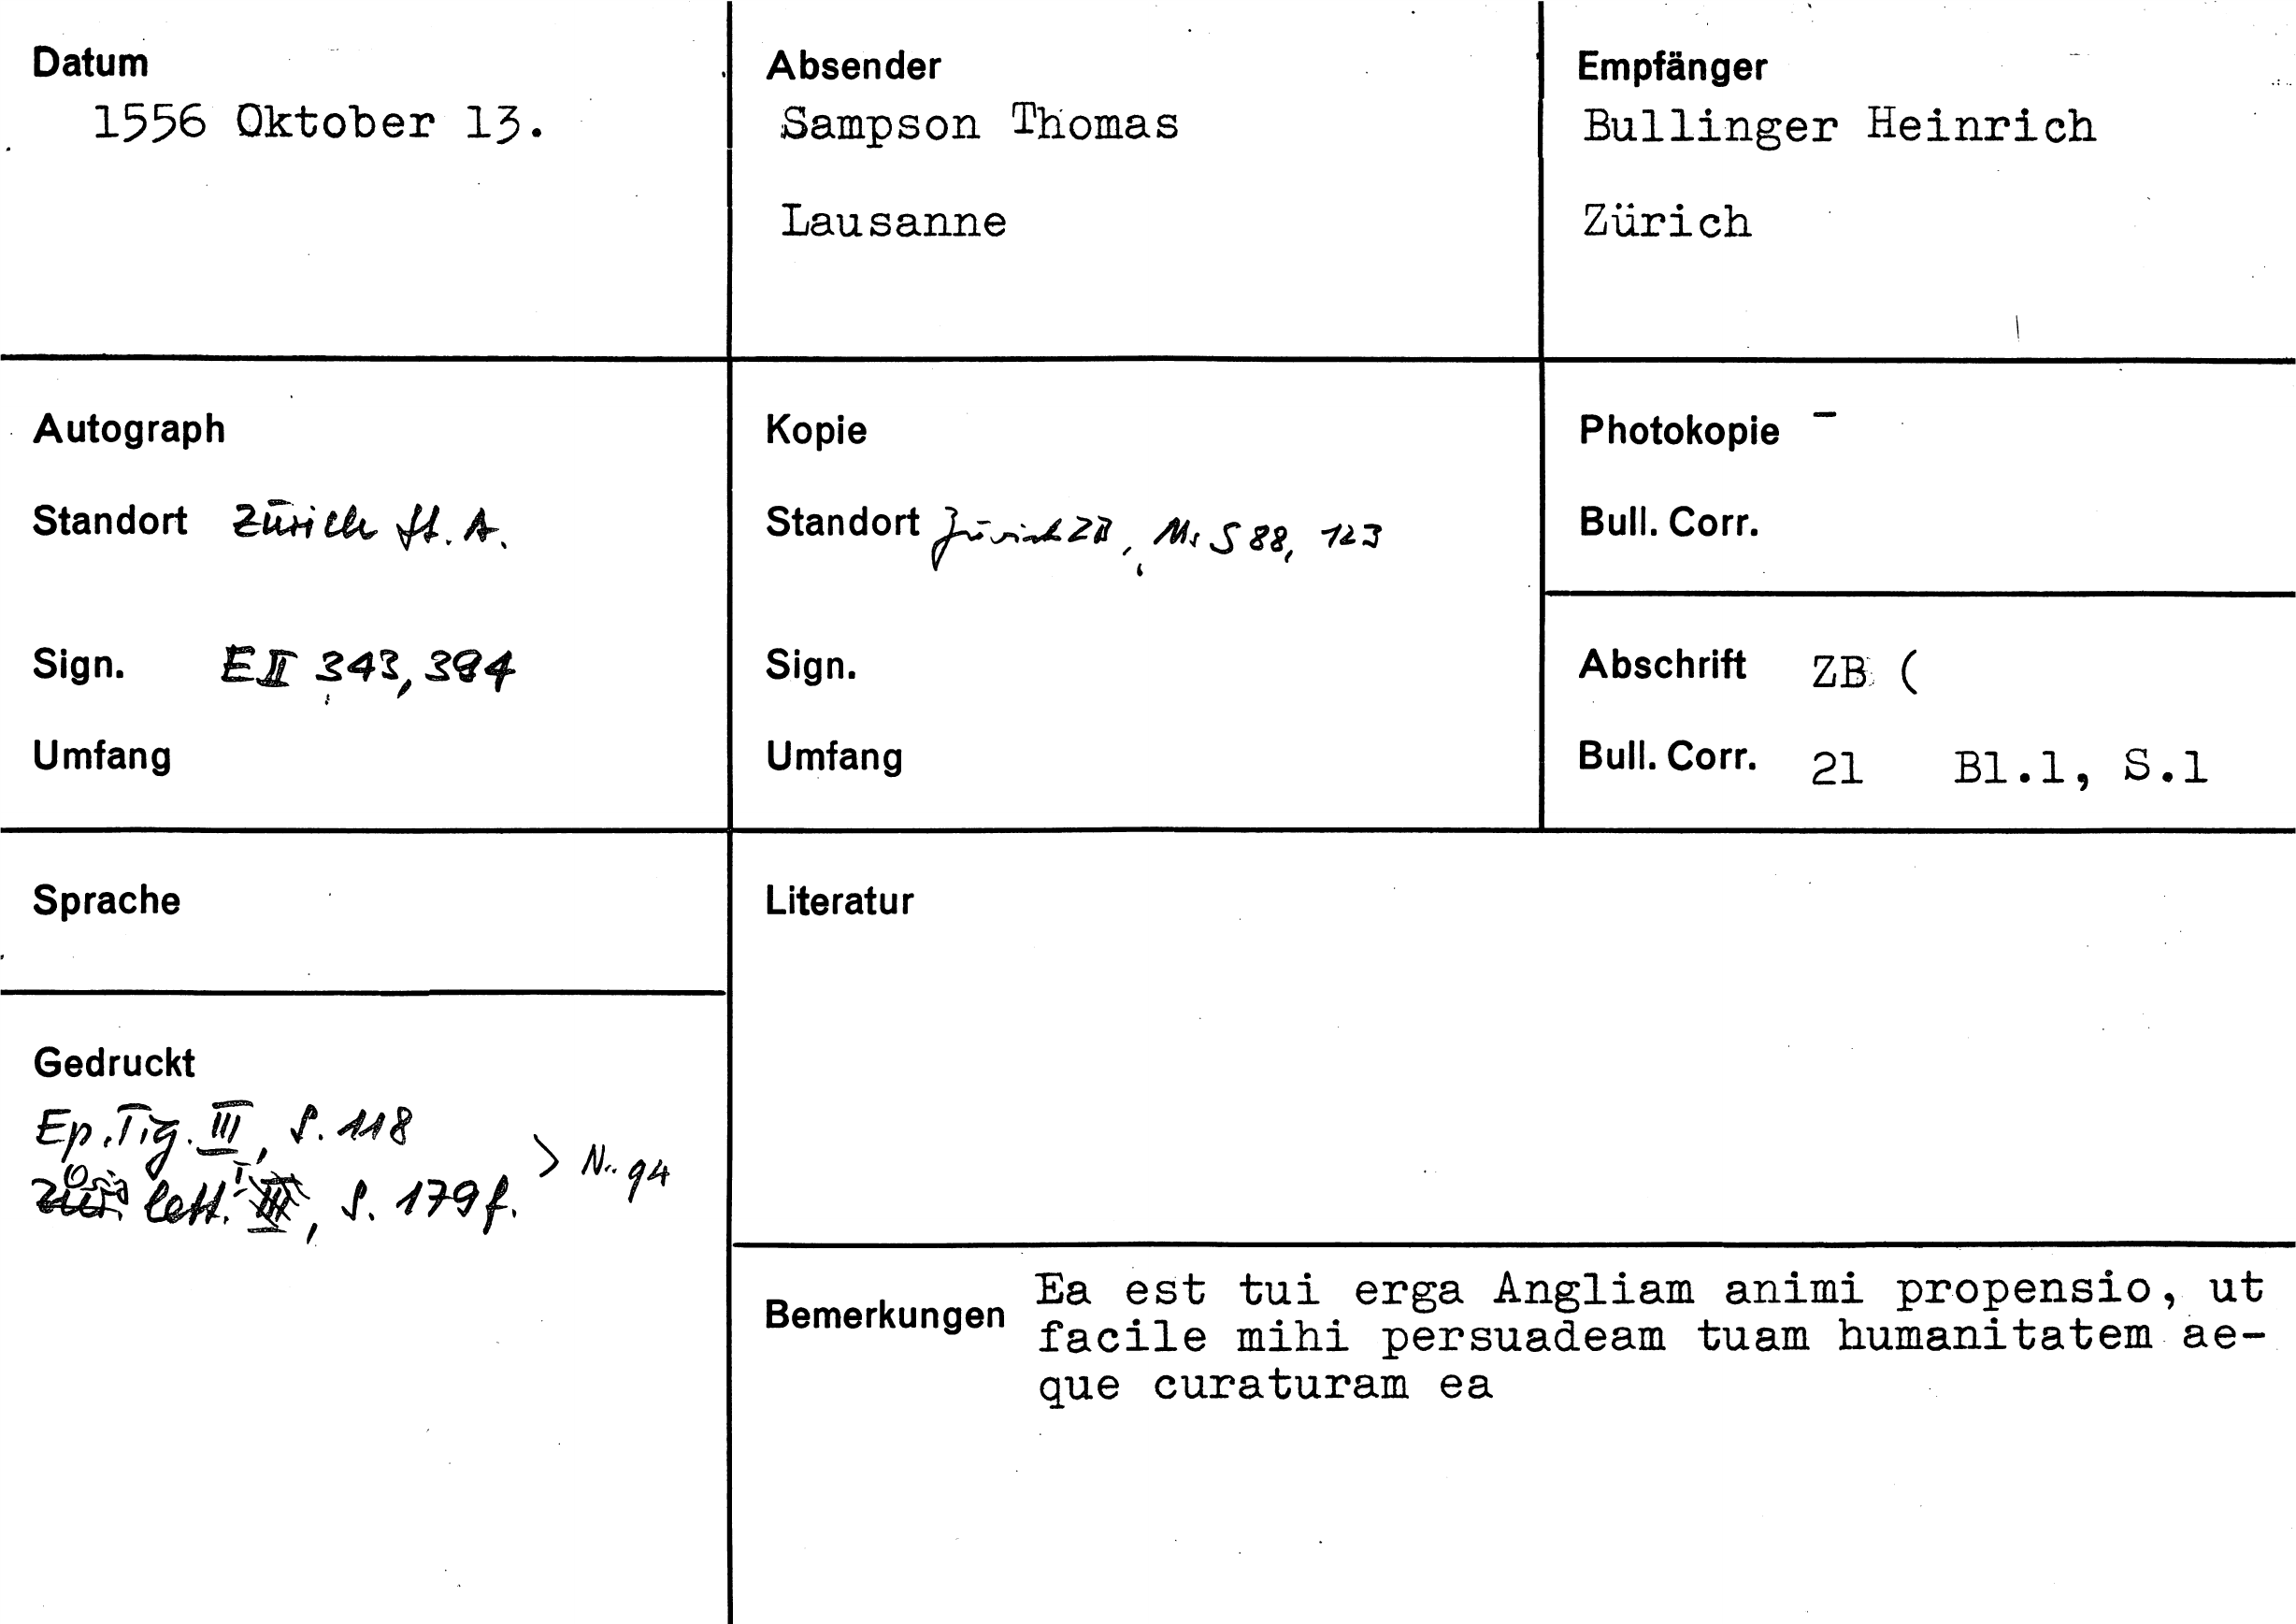 Datum
1556 Oktober 13.
Absender
Sampson Thomas
Lausanne
Empfänger
Bullinger Heinrich
Zürich
Autograph
Standort Zürich St. A.
Sign. E II 343, 384
Umfang
Kopie
Standort Zürich ZB, Ms S 88, 123
Sign.
Umfang
Photokopie –
Bull. Corr.
Abschrift ZB (
Bull. Corr. 21 Bl.1, S.1
Sprache
Literatur
Gedruckt
Ep. Tig. III, S. 118
lett. I, S. 179 f.
> Nr. 94
Bemerkungen
Ea est tui erga Angliam animi propensio, ut
facile mihi persuadeam tuam humanitatem ae-
que curaturam ea